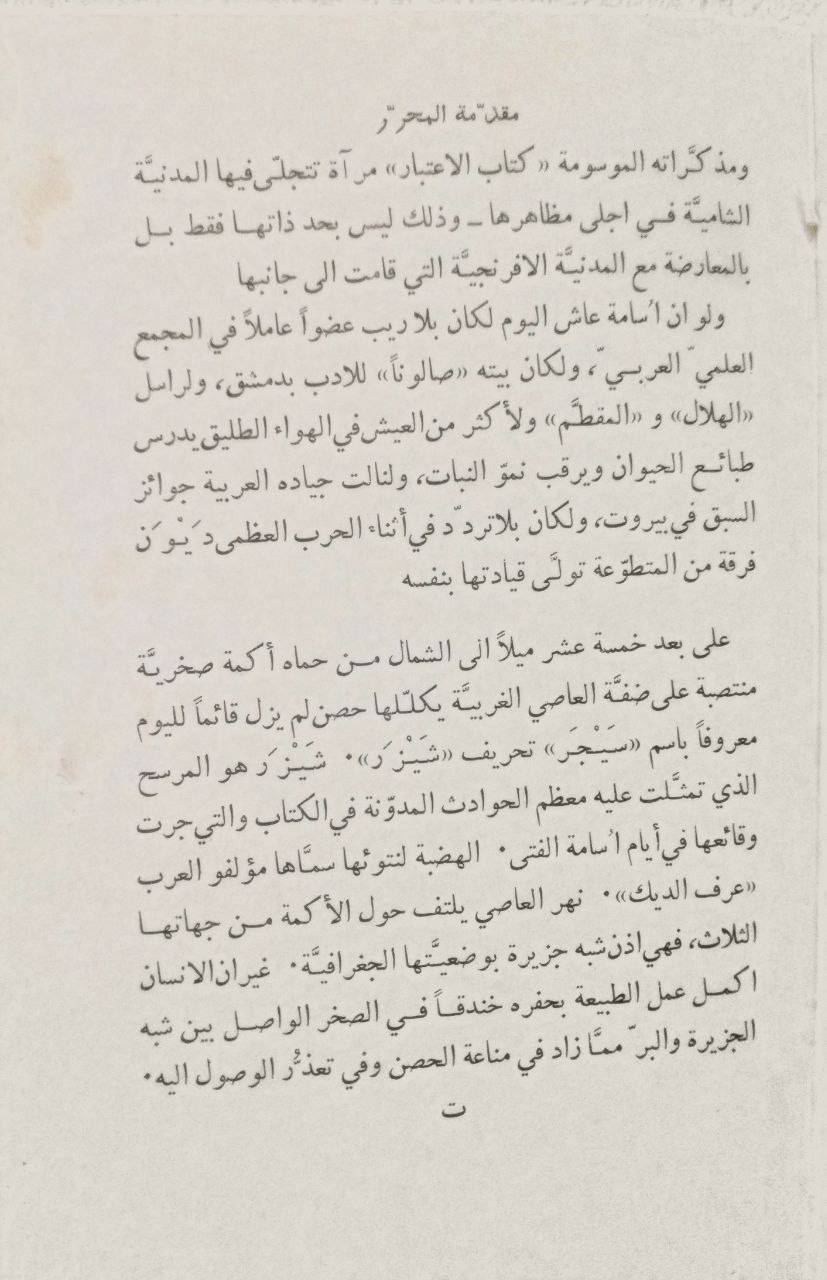 مقدّمة المحرّر
ومذكَّراته الموسومة «كتاب الاعتبار» مرآة تتجلّى فيها المدنيَّة
الشاميَّة في اجلى مظاهرها ــ وذلك ليس بحد ذاتها فقط بل
بالمعارضة مع المدنيَّة الافرنجيَّة التي قامت الى جانبها
ولو ان اُسامة عاش اليوم لكان بلا ريب عضواً عاملاً في المجمع
العلميّ العربيّ، ولكان بيته «صالوناً» للادب بدمشق، ولراسل
«الهلال» و «المقطَّم» ولأكثر من العيش في الهواء الطليق يدرس
طبائع الحيوان ويرقب نموّ النبات، ولنالت جياده العربية جوائز
السبق في بيروت، ولكان بلا تردّد في أثناء الحرب العظمى دَيْوَن
فرقة من المتطوّعة تولَّى قيادتها بنفسه
على بعد خمسة عشر ميلاً الى الشمال من حماه أكمة صخريَّة
منتصبة على ضفَّة العاصي الغربيَّة يكلّلها حصن لم يزل قائماً لليوم
معروفاً باسم «سَيْجَر» تحريف «شَيْزَر». شَيْزَر هو المرسح
الذي تمثَّلت عليه معظم الحوادث المدوّنة في الكتاب والتي جرت
وقائعها في أيام اُسامة الفتى. الهضبة لنتوئها سمَّاها مؤلفو العرب
«عرف الديك». نهر العاصي يلتف حول الأكمة من جهاتها
الثلاث، فهي اذن شبه جزيرة بوضعيَّتها الجغرافيَّة. غير ان الانسان
اكمل عمل الطبيعة بحفره خندقاً في الصخر الواصل بين شبه
الجزيرة والبرّ ممَّا زاد في مناعة الحصن وفي تعذُّر الوصول اليه.
ت